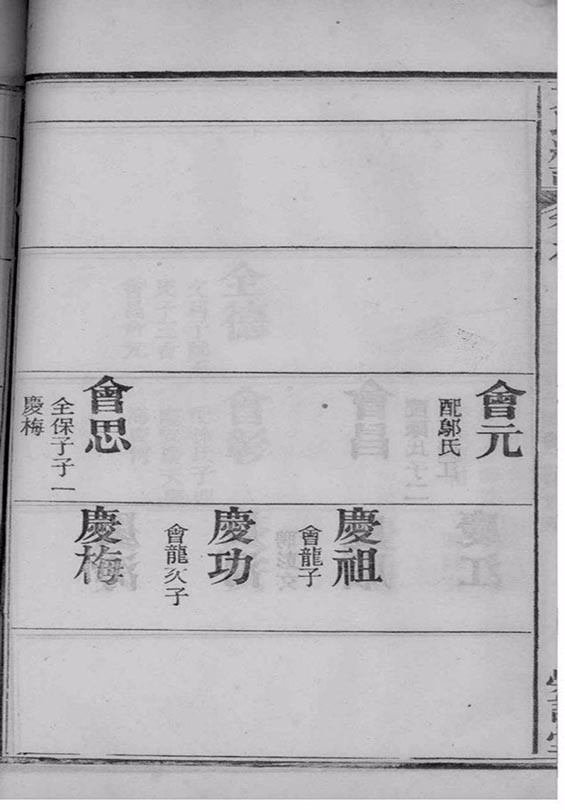 會元
配鄔氏
會思
全保子子一
慶梅
慶祖
會龍子
慶功
會龍次子
慶梅